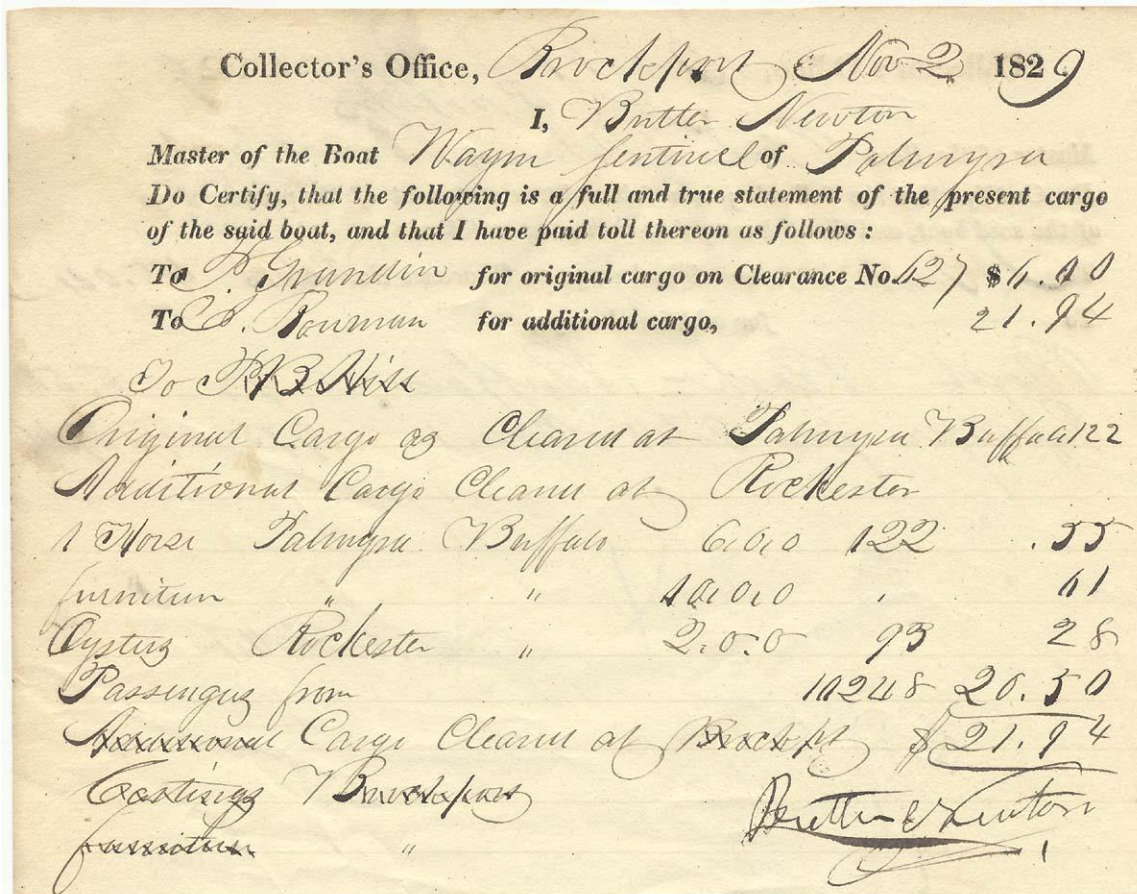 Collector's Office, Brockport Nov 2 1829
I, Butler Newton
Master of the Boat Wayne Sentinel of Palmyra
Do Certify, that the following is a full and true statement of the present cargo
of the said boat, and that I have paid toll thereon as follows :
To P. Grandin for original cargo on Clearance No. 627 $
To Bowman for additional cargo, 21.94
To Hill
Original Cargo as Cleared at Palmyra Buffalo 122
Additional Cargo Cleared at Rochester
1 Horse Palmyra Buffalo 6.0.0 122 .55
furniture " " 10.0.0 61
Oysters Rochester " 2.0.0 93 28
Passengers from 10248 20.50
Additional Cargo Cleared at Brockpt $21.94
Castings Brockport
furniture "
Butler Newton